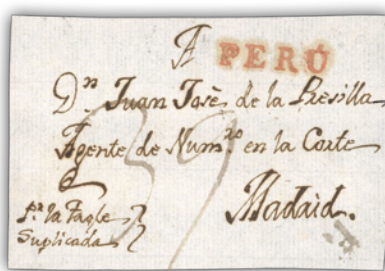 A PERÚ
Dn. Juan Josè de la Presilla
Agente de Numro. en la Corte
Madrid.
Suplicada